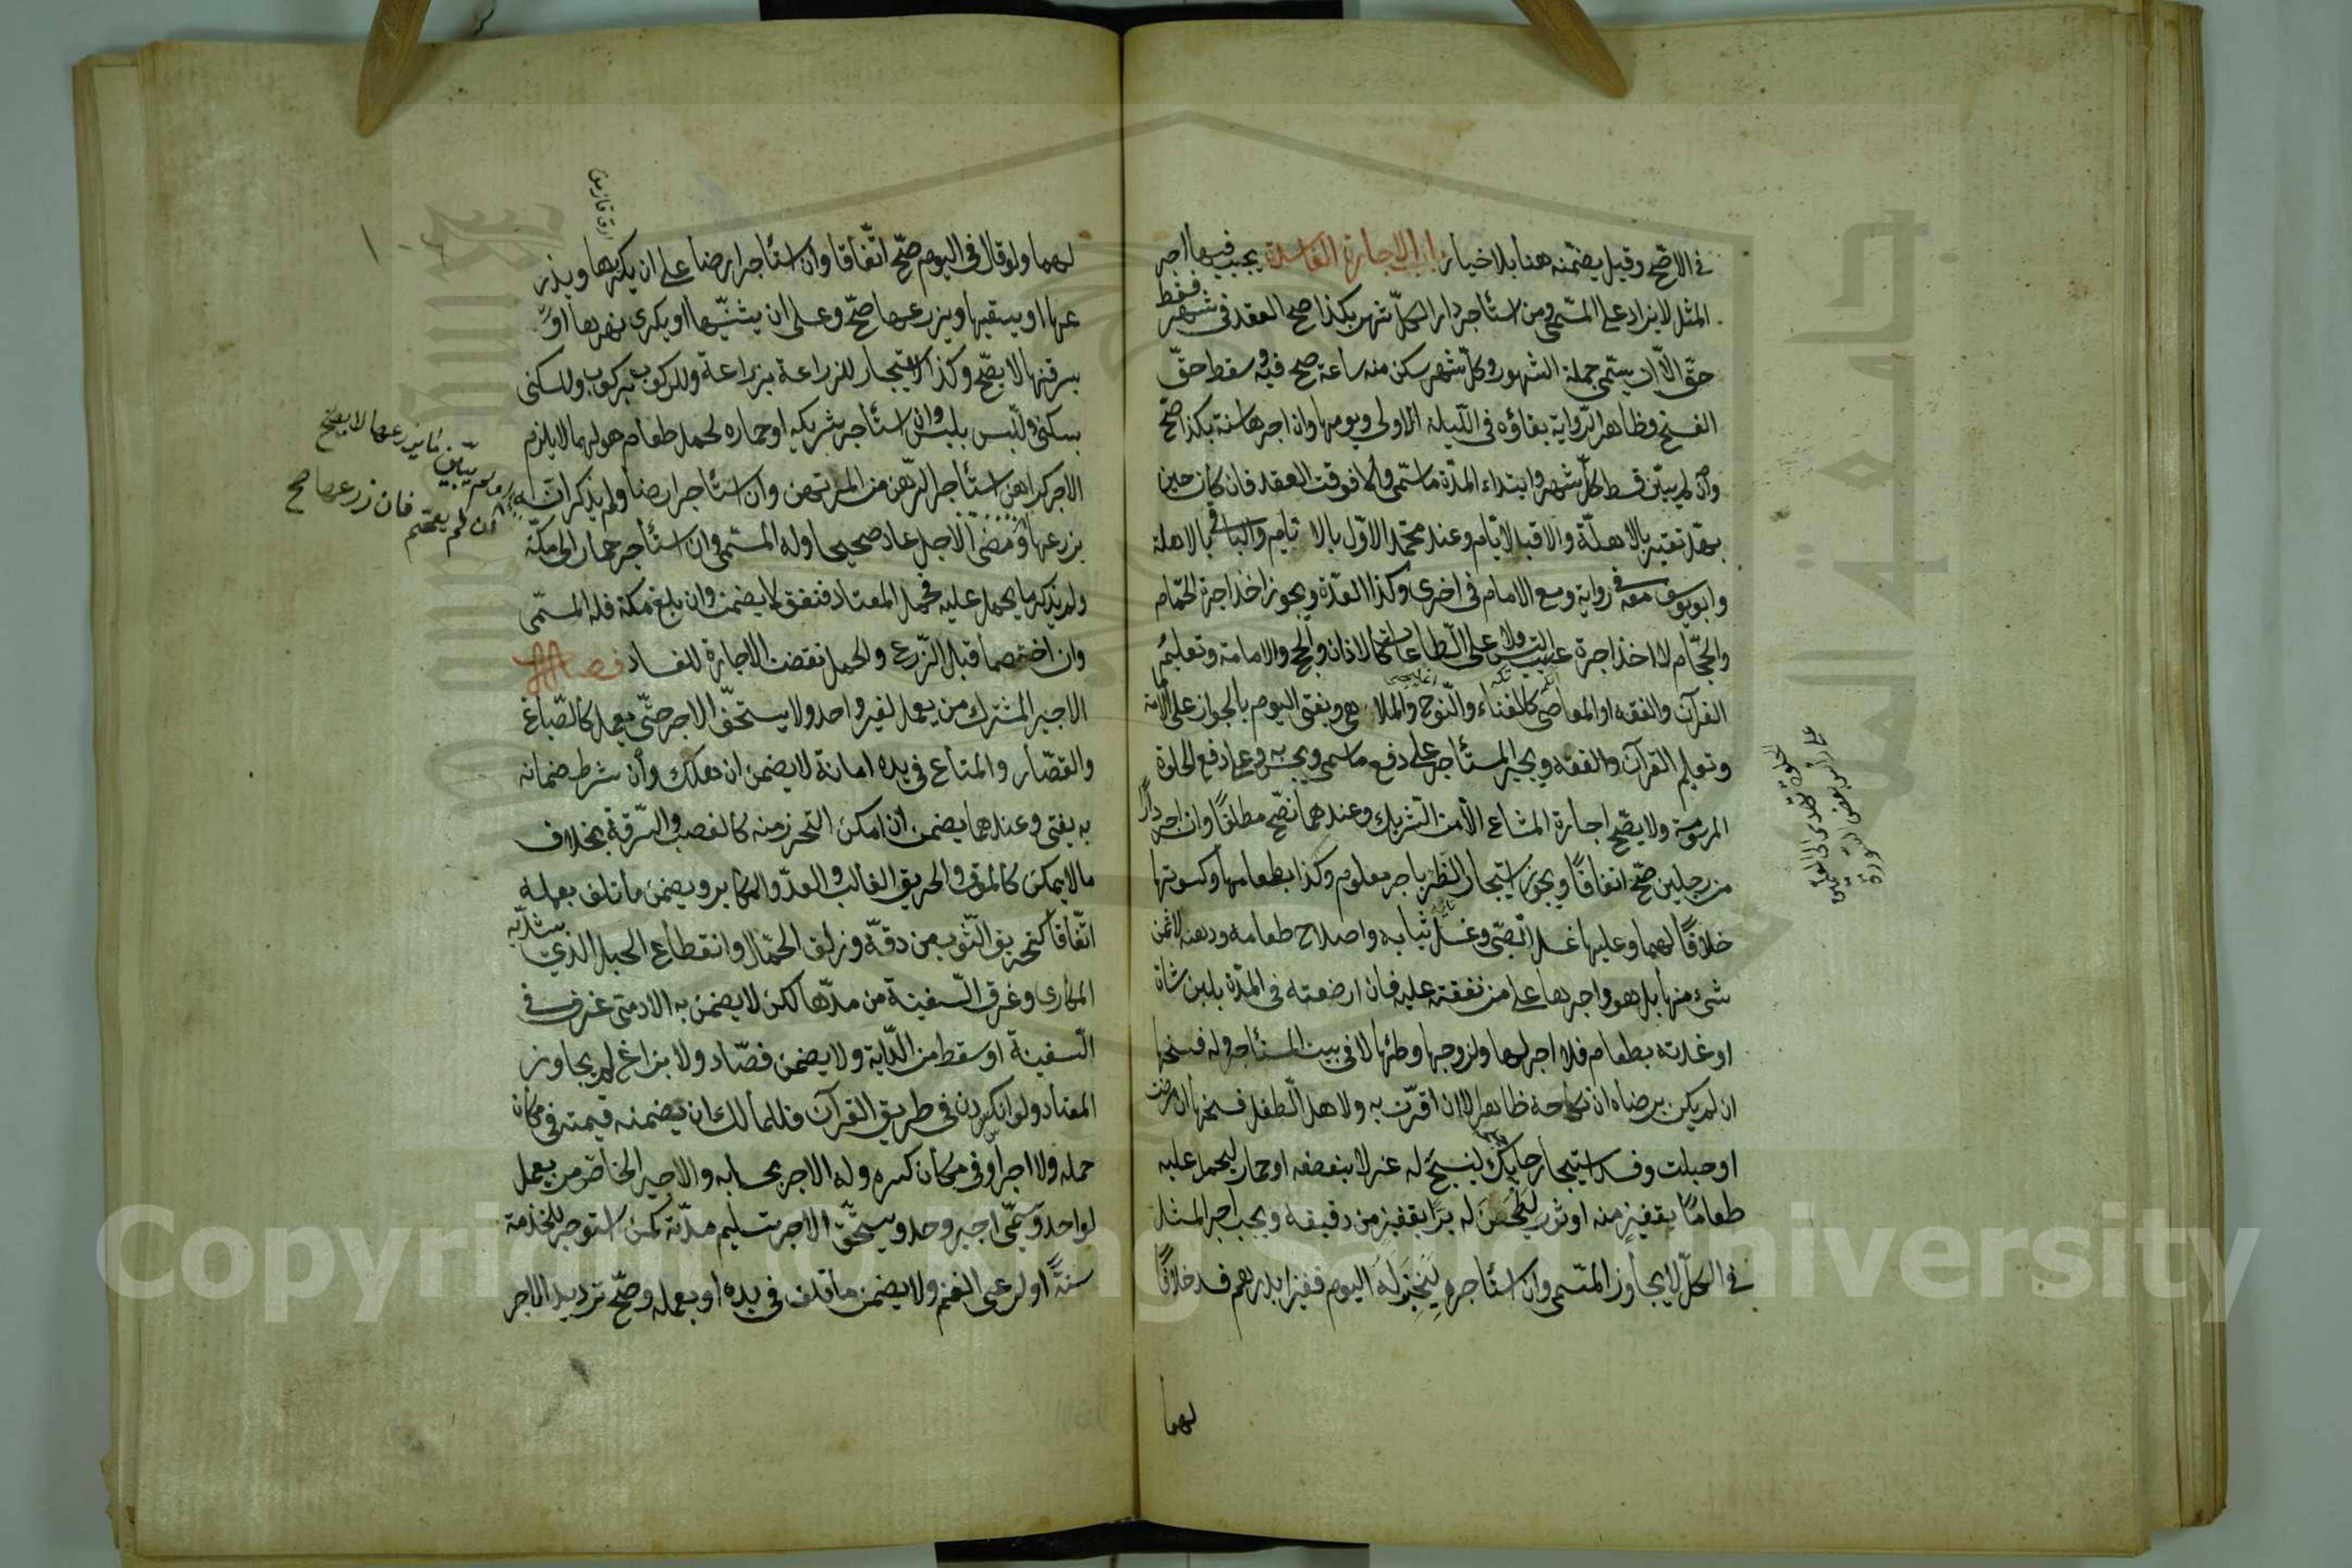 في الاصح وقيل يضمنه هنا بلا خيار باب الاجارة الفاسدة يجب فيها اجر
المثل لا يزاد على المسمى ومن استأجر دارا كل شهر بكذا صح العقد في شهر فقط
حق الا ان يسمى جملة الشهور وكل شهر سكن منه ساعة صح فيه وسقط حق
الفسخ وظاهر الرواية بقاؤه في الليلة الاولى ويومها وان اجرها سنة بكذا صح
وان لم يبين قسط كل شهر وابتداء المدة ما سمى والا فوقت العقد فان كان حين
يهل تعتبر بالاهلة والا فبالايام وعند محمد الاول بالايام والباقي بالاهلة
وابو يوسف معه في رواية ومع الامام في اخرى وكذا العدة ويجوز اخذ اجرة الحمام
والحجام لا اخذ اجرة عسب التيس ولا على الطاعات كالاذان والحج والامامة وتعليم
القرآن والفقه او المعاصي كالغناء والنوح والملاهي ويفتى اليوم بالجواز على الامامة
وتعليم القرآن والفقه ويجبر المستأجر على دفع ما سمى ويحبس به وعلى دفع الحلوة
المرسومة ولا يصح اجارة المشاع الا من الشريك وعندهما تصح مطلقا وان اجر دارا
من رجلين صح اتفاقا ويجوز استيجار الظئر باجر معلوم وكذا بطعامها وكسوتها
خلافا لهما وعليها غسل الصبى وغسل ثيابه واصلاح طعامه ودهنه لا ثمن
شيء منها بل هو واجرها على من نفقته عليه فان ارضعته في المدة بلبن شاة
او غذته بطعام فلا اجر لها ولزوجها وطئها لا في بيت المستأجر وله فسخها
ان لم يكن برضاه ان نكاحه ظاهرا لا ان اقرت به ولاهل الطفل فسخها ان مرضت
او حبلت وفسد استيجار حايك لينسج له غزلا بنصفه او حمار ليحمل عليه
طعاما بقفيز منه او ثور ليطحن له برا بقفيز من دقيقه ويجب اجر المثل
في الكل لا يجاوز المسمى وان استأجره ليخبز له اليوم قفيزا بدرهم فسد خلافا
لهما
لهما ولو قال في اليوم صح اتفاقا وان استأجر ارضا على ان يكريها ويزر
عها او يسقيها ويزرعها صح وعلى ان يثنيها او يكرى نهرها او
يسرقنها لا يصح وكذا استيجار للزراعة بزراعة وللركوب بركوب وللسكنى
بسكنى وللبس بلبس وان استأجر شريكه او حماره لحمل طعام هو لهما لا يلزم
الاجر كراهن استأجر الرهن من المرتهن وان استأجر ارضا ولم يذكر انه
يزرعها
لا يصح
فان زرعها صح
ومضى الاجل عاد صحيحا وله المسمى وان استأجر حمارا الى مكة
ولم يذكر ما يحمل عليه فحمل المعتاد فنفق لا يضمن وان بلغ مكة فله المسمى
وان اختصما قبل الزرع والحمل نقضت الاجارة للفساد فصل
الاجير المشترك من يعمل لغير واحد ولا يستحق الاجر حتى يعمل كالصباغ
والقصار والمتاع في يده امانة لا يضمن ان هلك وأن شرط ضمانه
به يفتى وعندهما يضمن ان امكن التحرز منه كالغصب والسرقة بخلاف
ما لا يمكن كالموت والحريق الغالب والعدو المكابر ويضمن ما تلف بعمله
اتفاقا كتخريق الثوب من دقه وزلق الحمال وانقطاع الحبل الذي يشد به
المكارى وغرق السفينة من مدها لكن لا يضمن به الادمى غرق في
السفينة او سقط من الدابة ولا يضمن فصاد ولا بزاغ لم يجاوز
المعتاد ولو انكسر دن في طريق القرآن فللمالك ان يضمنه قيمته في مكان
حمله ولا اجر او في مكان كسره وله الاجر بحسابه والاجير الخاص من يعمل
لواحد ويسمى اجير وحد ويستحق الاجر بتسليم مدته كمن استوجر للخدمة
سنة او لرعى الغنم ولا يضمن ما تلف في يده او بعمله وصح ترديد الاجر
Copyright © King Saud University
جامعة الملك سعود